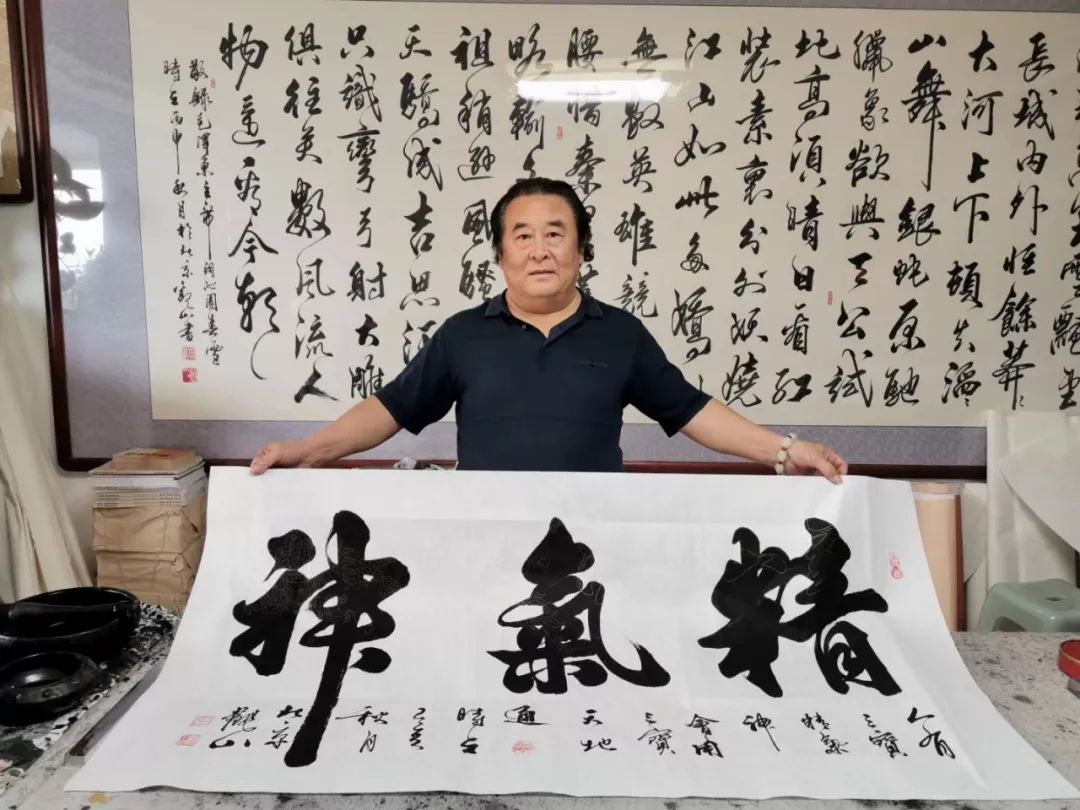 里雪飄望
長城內外惟餘莽〻
大河上下頓失滔
山舞銀蛇原馳
臘象欲與天公試
比高須晴日看紅
裝素裹分外妖嬈
江山如此多嬌引
無數英雄競
腰惜秦皇
略輸文
祖稍遜風騷
天驕成吉思汗
只識彎弓射大雕
俱往矣數風流人
物還看今朝
敬錄毛澤東主席詞沁園春雪
時在丙申秋月於北京觀山書
精氣神
人有
三寶
精氣
神
會用
三寶
天地
通
時在
己亥
秋月
北京
觀山